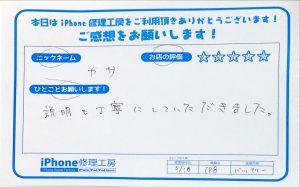 本日は iPhone 修理工房をご利用頂きありがとうございます!
ご感想をお願いします!
ニックネーム
お店の評価 ☆☆☆☆☆
カサ
ひとことお願いします!
説明も丁寧にしていただきました。
iPhone修理工房